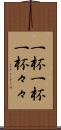 一杯一杯
一杯々々